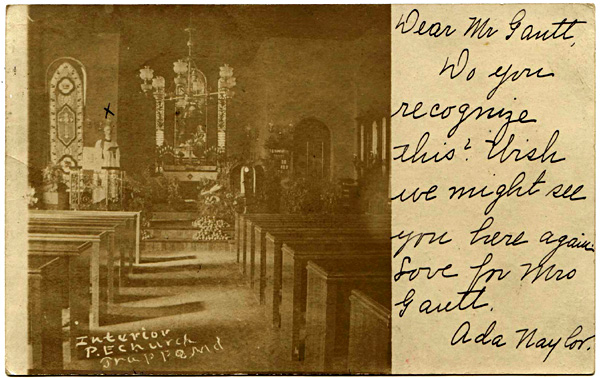 Dear Mr Gantt,
Do you
recognize
this? Wish
we might see
you here again.
Love for Mrs
Gantt.
Ada Naylor.
x
Interior
P.E church
Trappe Md